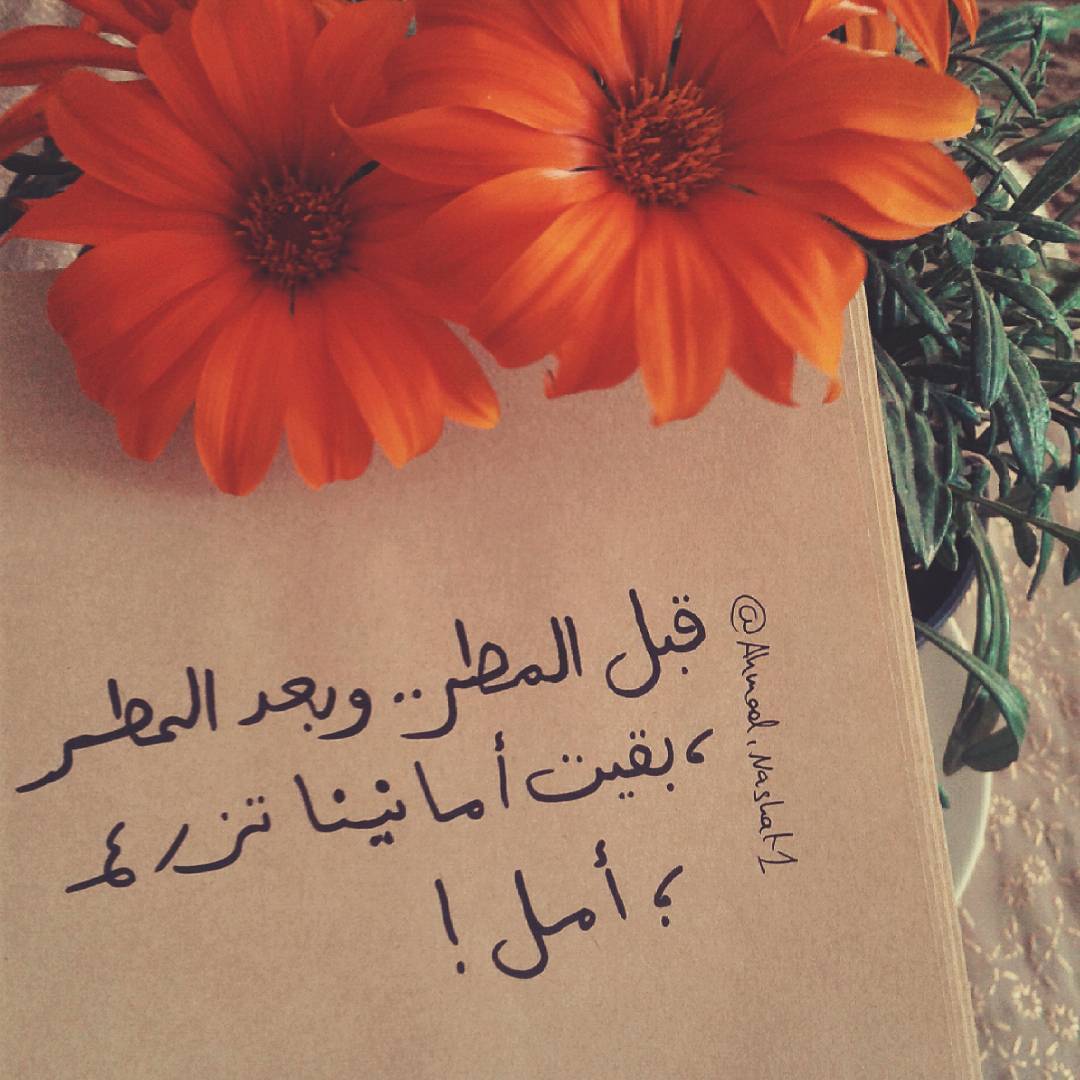 قبل المطر.. وبعد المطر
،بقيت أمانينا تزرع
، أمل !
@Ahmad.Nashat1